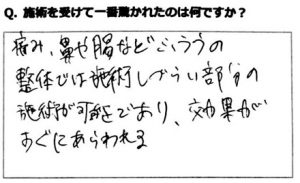 Q. 施術を受けて一番驚かれたのは何ですか？
痛み、鼻や腸などふつうの
整体では施術しづらい部分の
施術が可能であり、効果が
すぐにあらわれる